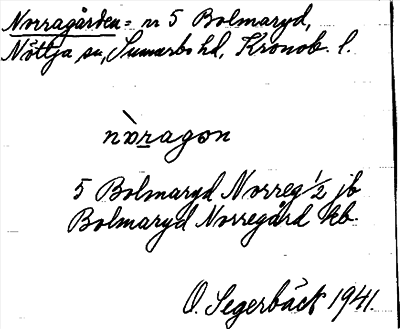 Norragården = nr 5 Bolmaryd,
Nöttja sn, Sunnerbo hd, Kronob. l.
nòragən
5 Bolmaryd Norreg 1/2 jb
Bolmaryd Norregård kb.
O. Segerbäck 1941.